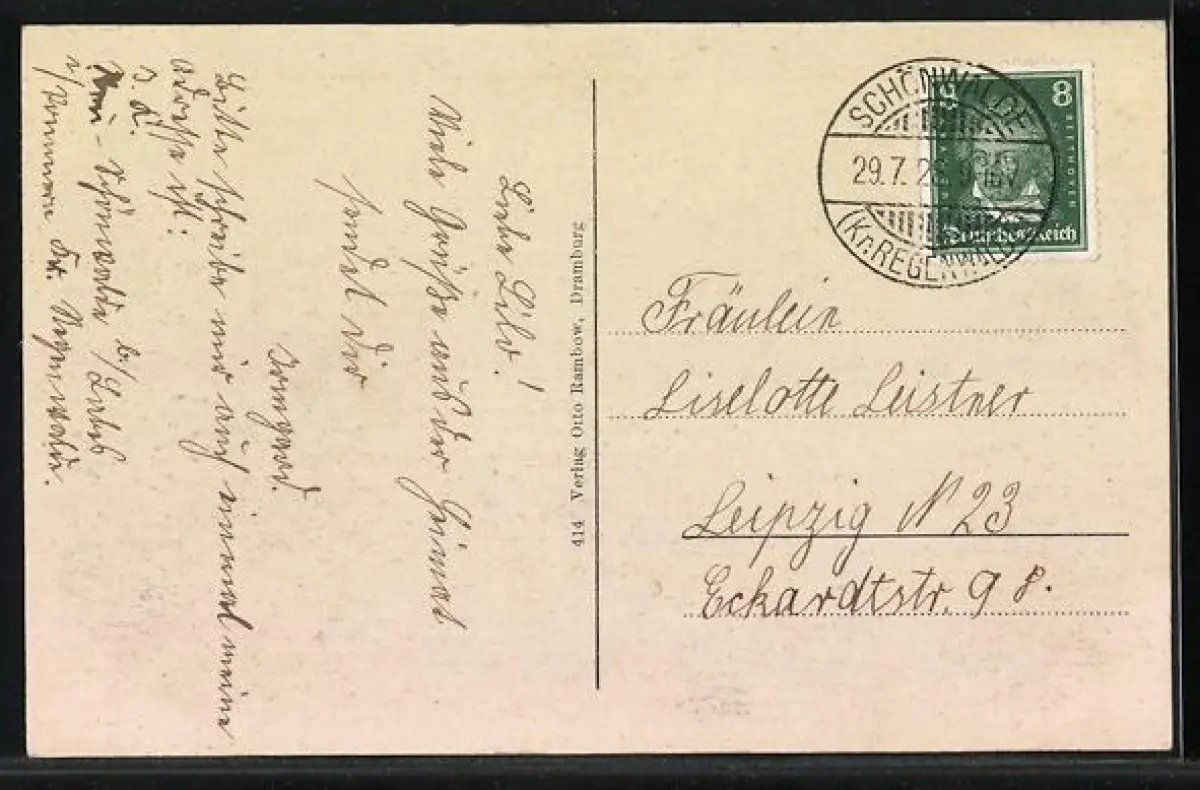 Liebe Lilo!
Viele Grüße aus der Heimat
sendet dir
Irmgard.
Bitte schreibe mir auch einmal meine
Adresse ist:
z. Z.
Neu-Schönwalde b/ Labes
i/ Pommern Kr. Regenwalde.
414 Verlag Otto Rambow, Dramburg
SCHÖNWALDE
29.7.
(Kr. REGENWALDE
8
BEETHOVEN
Deutsches Reich
Fräulein
Liselotte Leistner
Leipzig N 23
Eckardtstr. 9